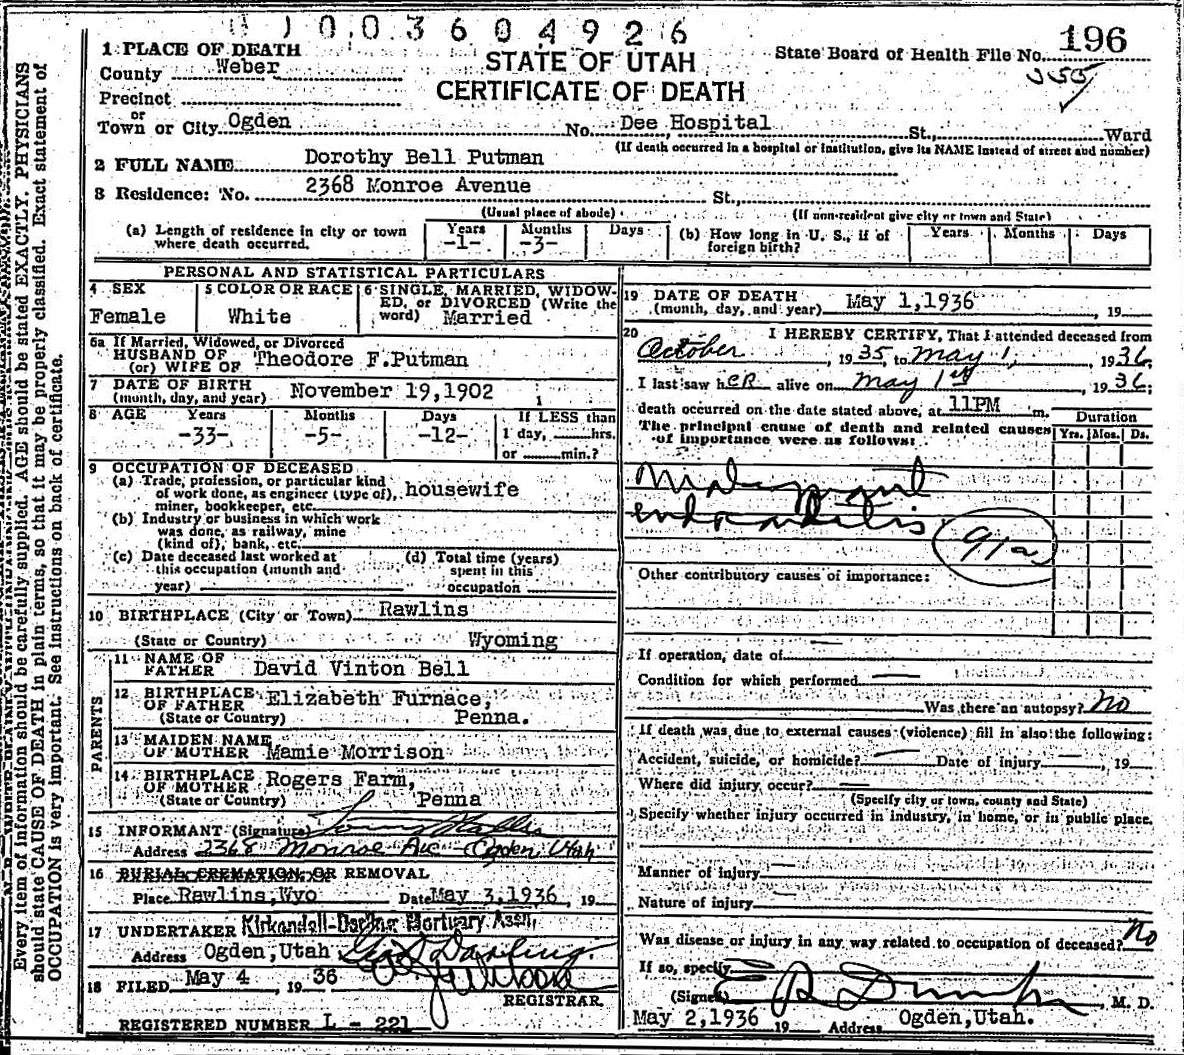 0 1 0 0 3 6 0 4 9 2 6
1 PLACE OF DEATH
County Weber
Precinct
or
Town or City Ogden No. Dee Hospital St., Ward
(If death occurred in a hospital or institution, give its NAME instead of street and number)
STATE OF UTAH
CERTIFICATE OF DEATH
State Board of Health File No. 196
355
2 FULL NAME Dorothy Bell Putman
3 Residence: No. 2368 Monroe Avenue St.,
(Usual place of abode) (If non-resident give city or town and State)
(a) Length of residence in city or town where death occurred. Years -1- Months -3- Days
(b) How long in U. S., if of foreign birth? Years Months Days
PERSONAL AND STATISTICAL PARTICULARS
4 SEX Female
5 COLOR OR RACE White
6 SINGLE, MARRIED, WIDOWED, or DIVORCED (Write the word) Married
6a If Married, Widowed, or Divorced
HUSBAND OF
(or) WIFE OF Theodore F.Putman
7 DATE OF BIRTH
(month, day, and year) November 19,1902
8 AGE Years -33- Months -5- Days -12- If LESS than 1 day, hrs. or min.?
9 OCCUPATION OF DECEASED
(a) Trade, profession, or particular kind of work done, as engineer (type of), miner, bookkeeper, etc. housewife
(b) Industry or business in which work was done, as railway, mine (kind of), bank, etc.
(c) Date deceased last worked at this occupation (month and year)
(d) Total time (years) spent in this occupation
10 BIRTHPLACE (City or Town) Rawlins
(State or Country) Wyoming
PARENTS
11 NAME OF FATHER David Vinton Bell
12 BIRTHPLACE OF FATHER Elizabeth Furnace,
(State or Country) Penna.
13 MAIDEN NAME OF MOTHER Mamie Morrison
14 BIRTHPLACE OF MOTHER Rogers Farm,
(State or Country) Penna
15 INFORMANT (Signature)
Address 2368 Monroe Ave - Ogden, Utah
16 BURIAL CREMATION, OR REMOVAL
Place Rawlins,Wyo Date May 3,1936 , 19
17 UNDERTAKER Kirkendall-Darling Mortuary Assn.
Address Ogden,Utah Geo S Darling.
18 FILED May 4 , 19 36
REGISTRAR
REGISTERED NUMBER L - 221
19 DATE OF DEATH
(month, day, and year) May 1,1936 , 19
20 I HEREBY CERTIFY, That I attended deceased from
October , 1935, to May 1, , 1936,
I last saw her alive on May 1st , 1936;
death occurred on the date stated above, at 11PM m.
The principal cause of death and related causes of importance were as follows:
Duration
Yrs. Mos. Ds.
endocarditis
91a
Other contributory causes of importance:
If operation, date of —
Condition for which performed —
Was there an autopsy? No
If death was due to external causes (violence) fill in also the following:
Accident, suicide, or homicide? — Date of injury — , 19
Where did injury occur? —
(Specify city or town, county and State)
Specify whether injury occurred in industry, in home, or in public place.
Manner of injury —
Nature of injury
Was disease or injury in any way related to occupation of deceased? No
If so, specify
(Signed) M. D.
May 2,1936 19 Address Ogden,Utah.
Every item of information should be carefully supplied. AGE should be stated EXACTLY. PHYSICIANS
should state CAUSE OF DEATH in plain terms, so that it may be properly classified. Exact statement of
OCCUPATION is very important. See instructions on back of certificate.